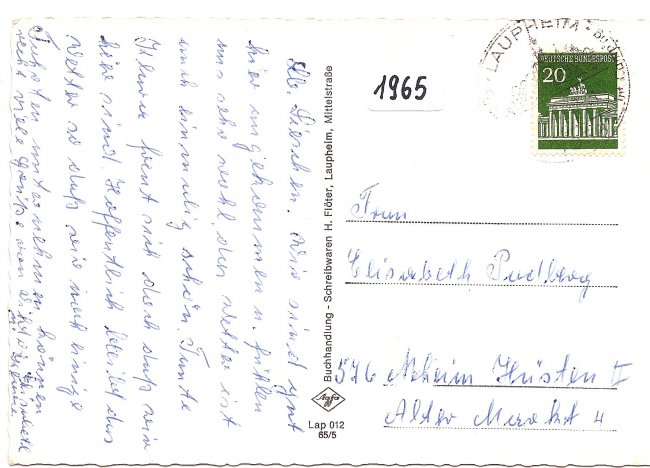 Lb. Lieschen! Wir sind gut
hier angekommen u. fühlen
uns sehr wohl, das Wetter ist
auch einmalig schön. Tante
freut sich doch daß wir
hier sind. Hoffentlich bleibt das
Wetter so daß wir noch einige
Fahrten unternehmen können
recht viele Grüße von
Buchhandlung - Schreibwaren H. Flöter, Laupheim, Mittelstraße
Agfa
Lap 012
65/5
1965
LAUPHEIM
DEUTSCHE BUNDESPOST
20
Frau
Elisabeth Pudberg
576 Neheim Hüsten II
Alter Markt 4